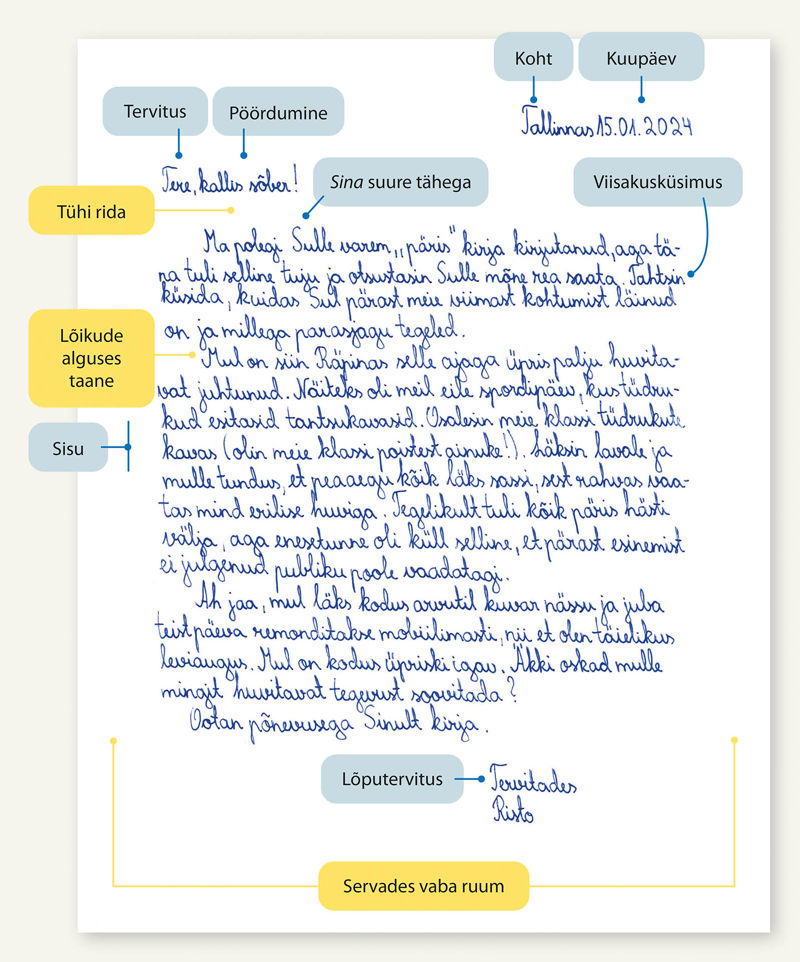 Koht
Kuupäev
Tallinnas 15.01.2024
Tervitus
Pöördumine
Tere, kallis sõber!
Sina suure tähega
Viisakusküsimus
Tühi rida
Ma polegi Sulle varem „päris“ kirja kirjutanud, aga tä-
na tuli selline tuju ja otsustasin Sulle mõne rea saata. Tahtsin
küsida, kuidas Sul pärast meie viimast kohtumist läinud
on ja millega parasjagu tegeled.
Lõikude
alguses
taane
Mul on siin Räpinas selle ajaga üpris palju huvita-
vat juhtunud. Näiteks oli meil eile spordipäev, kus tüdru-
kud esitasid tantsukavasid. Osalesin meie klassi tüdrukute
Sisu
kavas (olin meie klassi poistest ainuke!). Läksin lavale ja
mulle tundus, et peaaegu kõik läks sassi, sest rahvas vaa-
tas mind erilise huviga. Tegelikult tuli kõik päris hästi
välja, aga enesetunne oli küll selline, et pärast esinemist
ei julgenud publiku poole vaadatagi.
Ah jaa, mul läks kodus arvutil kuvar nässu ja juba
teist päeva remonditakse mobiilimasti, nii et olen täielikus
leviaugus. Mul on kodus üpriski igav. Äkki oskad mulle
mingit huvitavat tegevust soovitada?
Ootan põnevusega Sinult kirja.
Lõputervitus
Tervitades
Risto
Servades vaba ruum